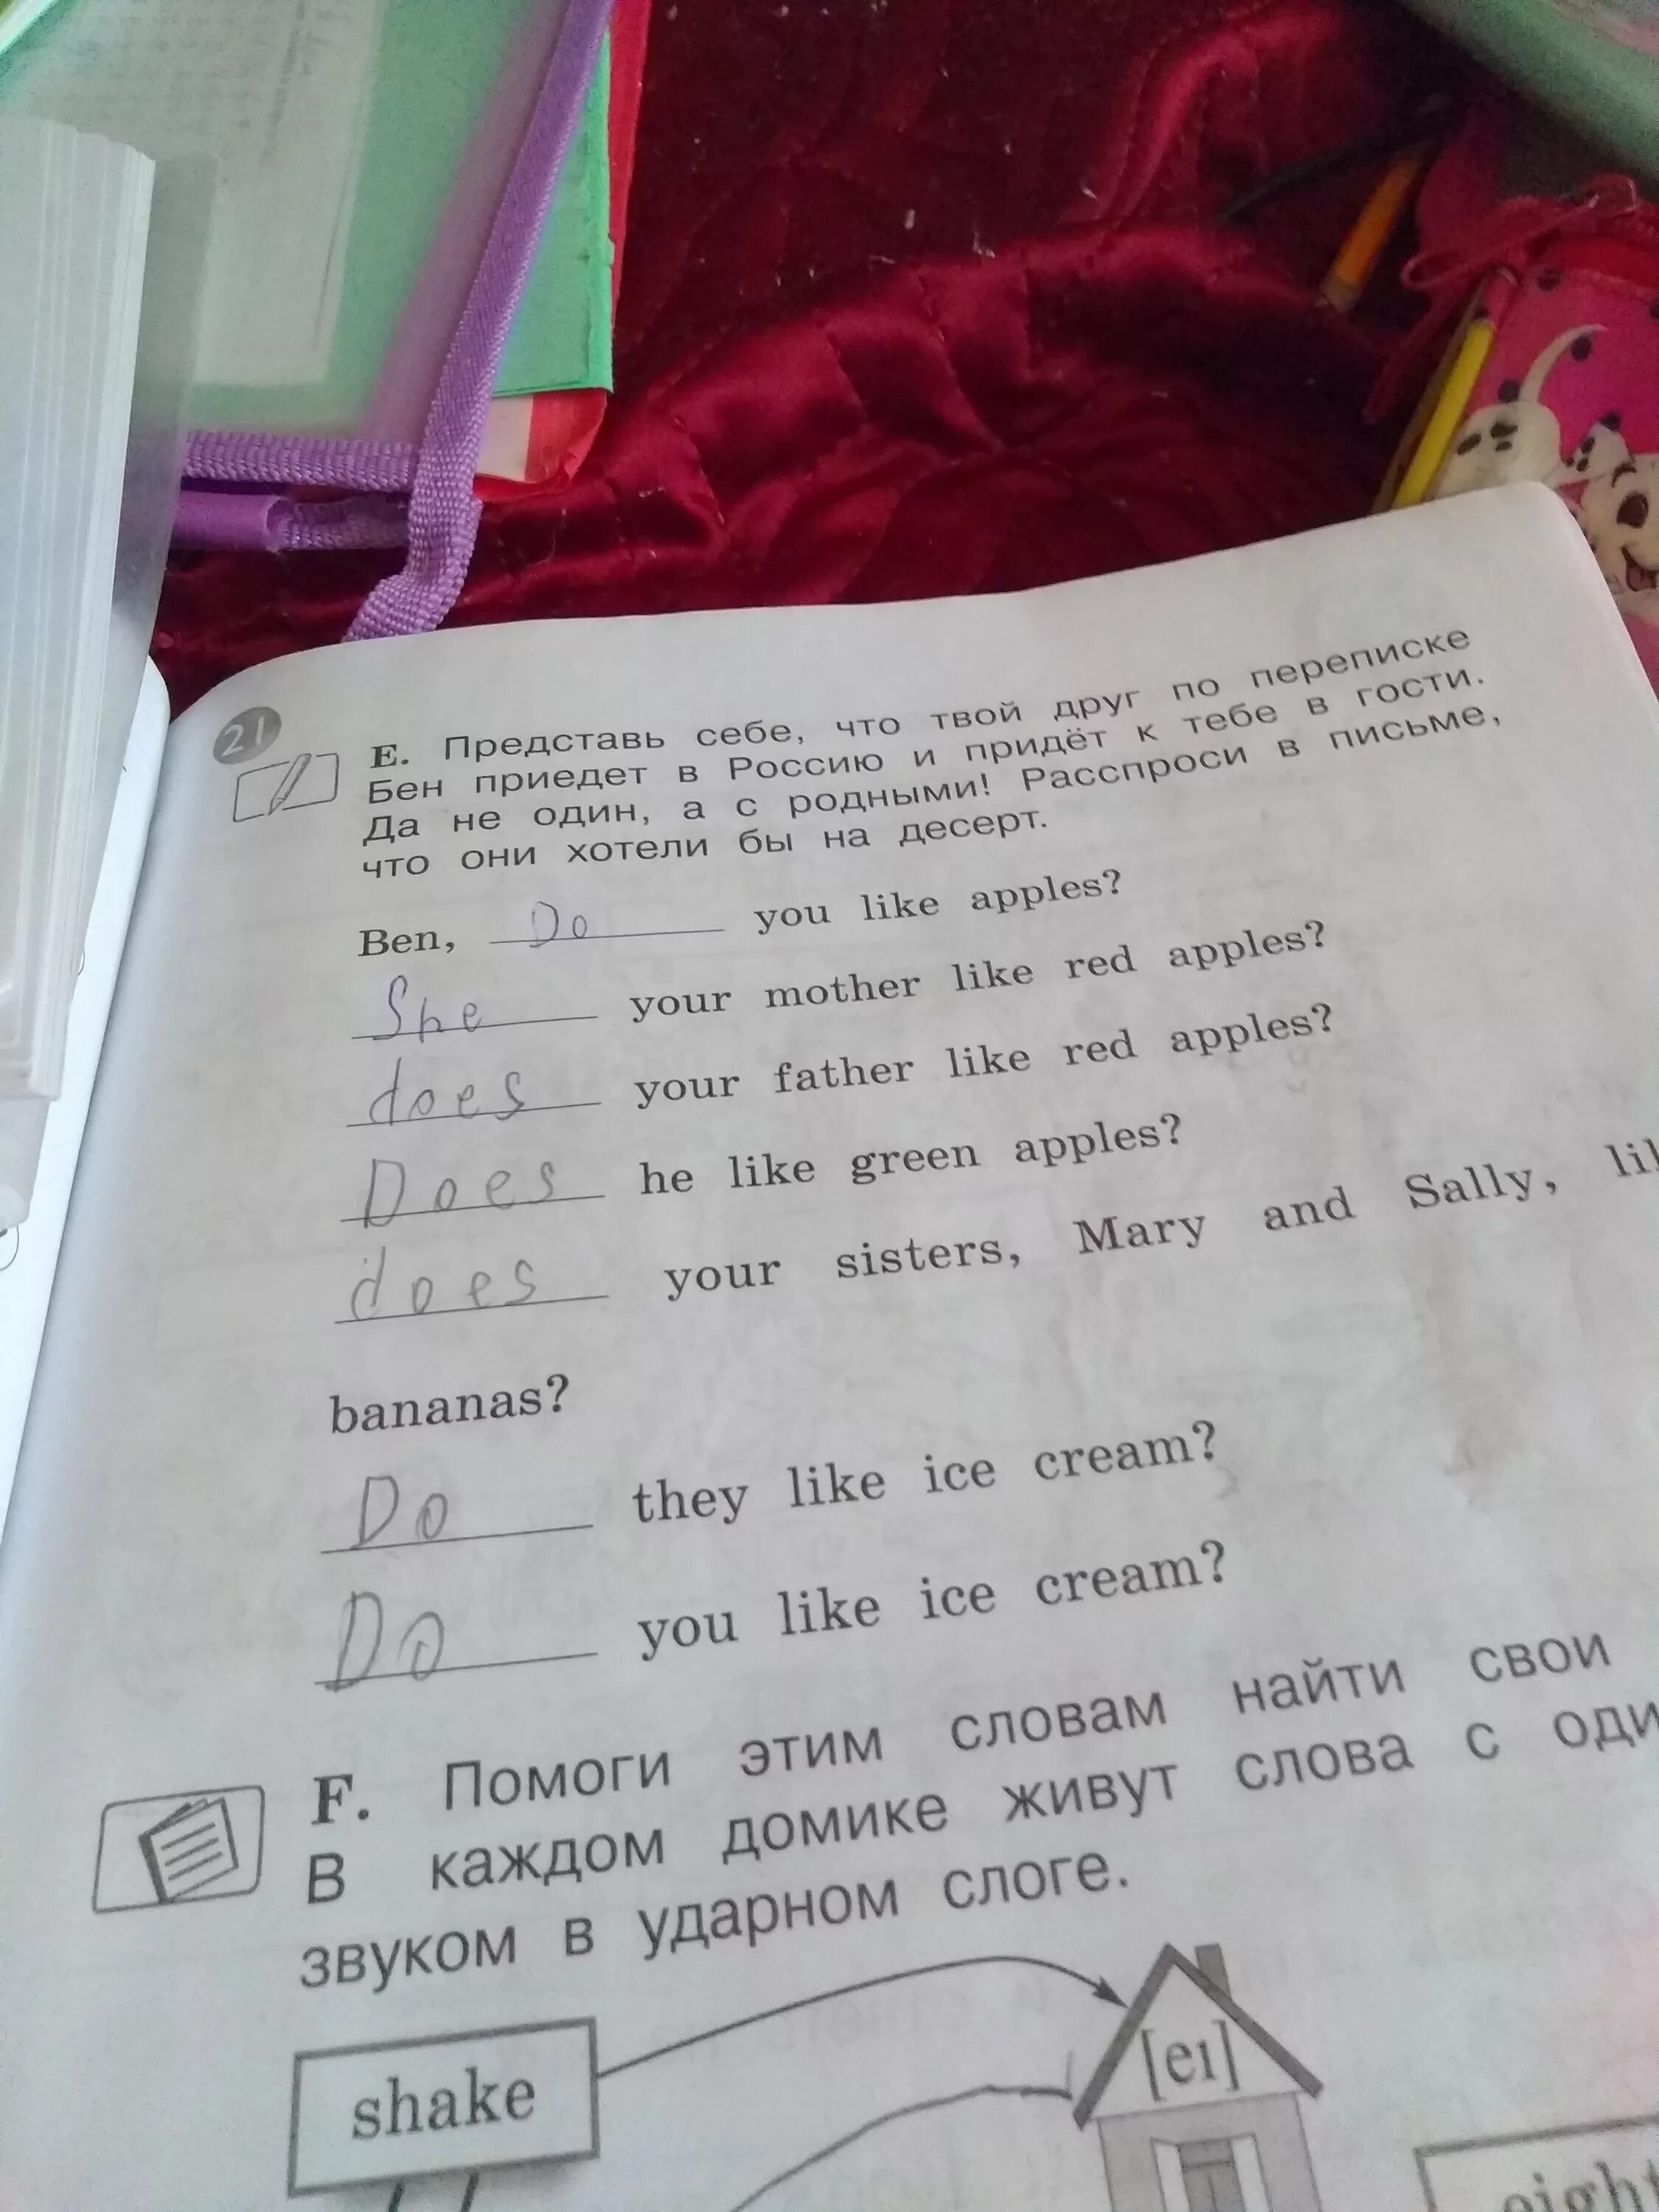 21
E. Представь себе, что твой друг по переписке
Бен приедет в Россию и придёт к тебе в гости.
Да не один, а с родными! Расспроси в письме,
что они хотели бы на десерт.
Ben, Do you like apples?
She your mother like red apples?
does your father like red apples?
Does he like green apples?
does your sisters, Mary and Sally, lik
bananas?
Do they like ice cream?
Do you like ice cream?
F. Помоги этим словам найти свои
В каждом домике живут слова с оди
звуком в ударном слоге.
[eɪ]
shake
eight